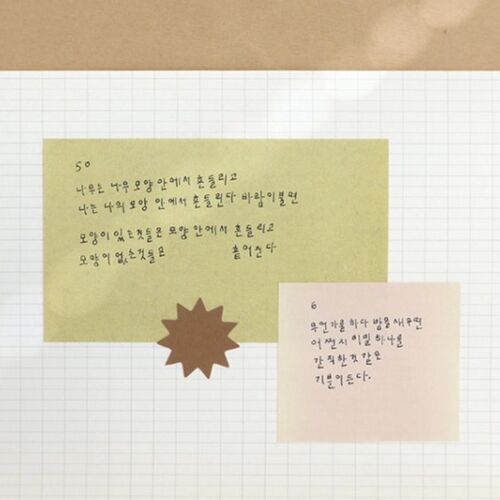 50
나무는 나무 모양 안에서 흔들리고
나는 나의 모양 안에서 흔들린다 바람이 불면
모양이 있는것들은 모양 안에서 흔들리고
모양이 없는것들은 흩어진다
6
무언가를 하다 밤을 새우면
어쩐지 비밀 하나를
간직한 것 같은
기분이 든다.